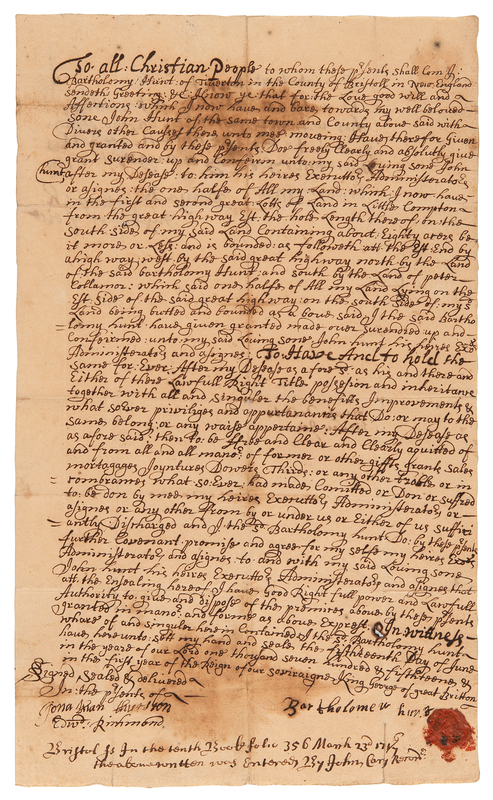 To all: Christian People to whom these psents shall Com I:
Bartholomy Hunt of Tiverton in the County of Bristoll in New England
sendeth Greeting: &C: Know ye that for the Love good will and
Affections which I now have and bare towards my well beloved
Sone John Hunt of the same town and County above said with
Divers other Causes there unto mee moveing: Have therefor Given
and granted and by these psents Doe freely Clearly and absolutly give
grant Surender up and Confeirm unto my said loving sone John
hunt after my Desease: to him his heires Executtors Administrators
or asignes: the one halfe of All my Land: which I now have
in the first and second great Lotts of Land in Little Compton
from the great high way Est. the hole Length thereof on the
South side of my said Land Containing about Eighty acors be
it more or Less: and is bounded: as followeth att the Est End by
a high way: west by the said great highway north by the Land
of the said bartholomy Hunt: and south by the Land of peter
Collamor: which said one halfe of All my Land Lying on the
Est Side of the said great highway: on the south side of my sd
Land being butted and bounded as a bove said I the said Bartho
=lomy hunt have given granted made over Surended up and
Confeirmed unto my said Loving sone John hunt his heires Exrs
Administrators and asignes: To Have And to hold the
same for: Ever: After my Desease as a fore sd: as his and there and
Either of there Lawfull Right Title possesion and inheritance
together with all and singuler the benefits Improvements &
what soever priviliges and appurtenances that Do: or may to the
same belong: or any waise appertaine: After my Desease as
as afore said: then to be ffree and Clear and Clearly aquitted of
and from all and all manor of former or other gifts grants Sales
mortagages Joyntures Dowers Thirds: or any other trable or in
=combrances what so: Ever had made Comitted or Don or suffred
to: be don by mee my heires Executtors Administrators or
asignes or any other from by or under us or Either of us suffici
=antly Discharged and I the sd Bartholomy hunt Do: by these psents
further Covenant promise and agree for my selfe my heires Exrs
Administrators and asignes: to: and with my said Loving sone
John hunt his heires Executtors Administrators and asignes that
att the Ensealing hereof I have Good Right full power and Lawfull
Authority to: give and dispose of the premises above by these psents
granted in manor and forme as above Exprest: In witness
whare of and singuler here in Contained I the sd Bartholomy hunt
have here unto sett my hand and seale the fifteenth Day of June
in the yeare of our Lord one thousand seven hundred & fifteene, &
in the first year of the Reign of our soviraigne King George of great Britton
Signed Sealed & delivered
In: the psents of
Jonathan
Edwd: Richmond
Bartholomew hunt
Bristol Is In the tenth Book folio 356 March 23d
the above written was Entered By John Cary